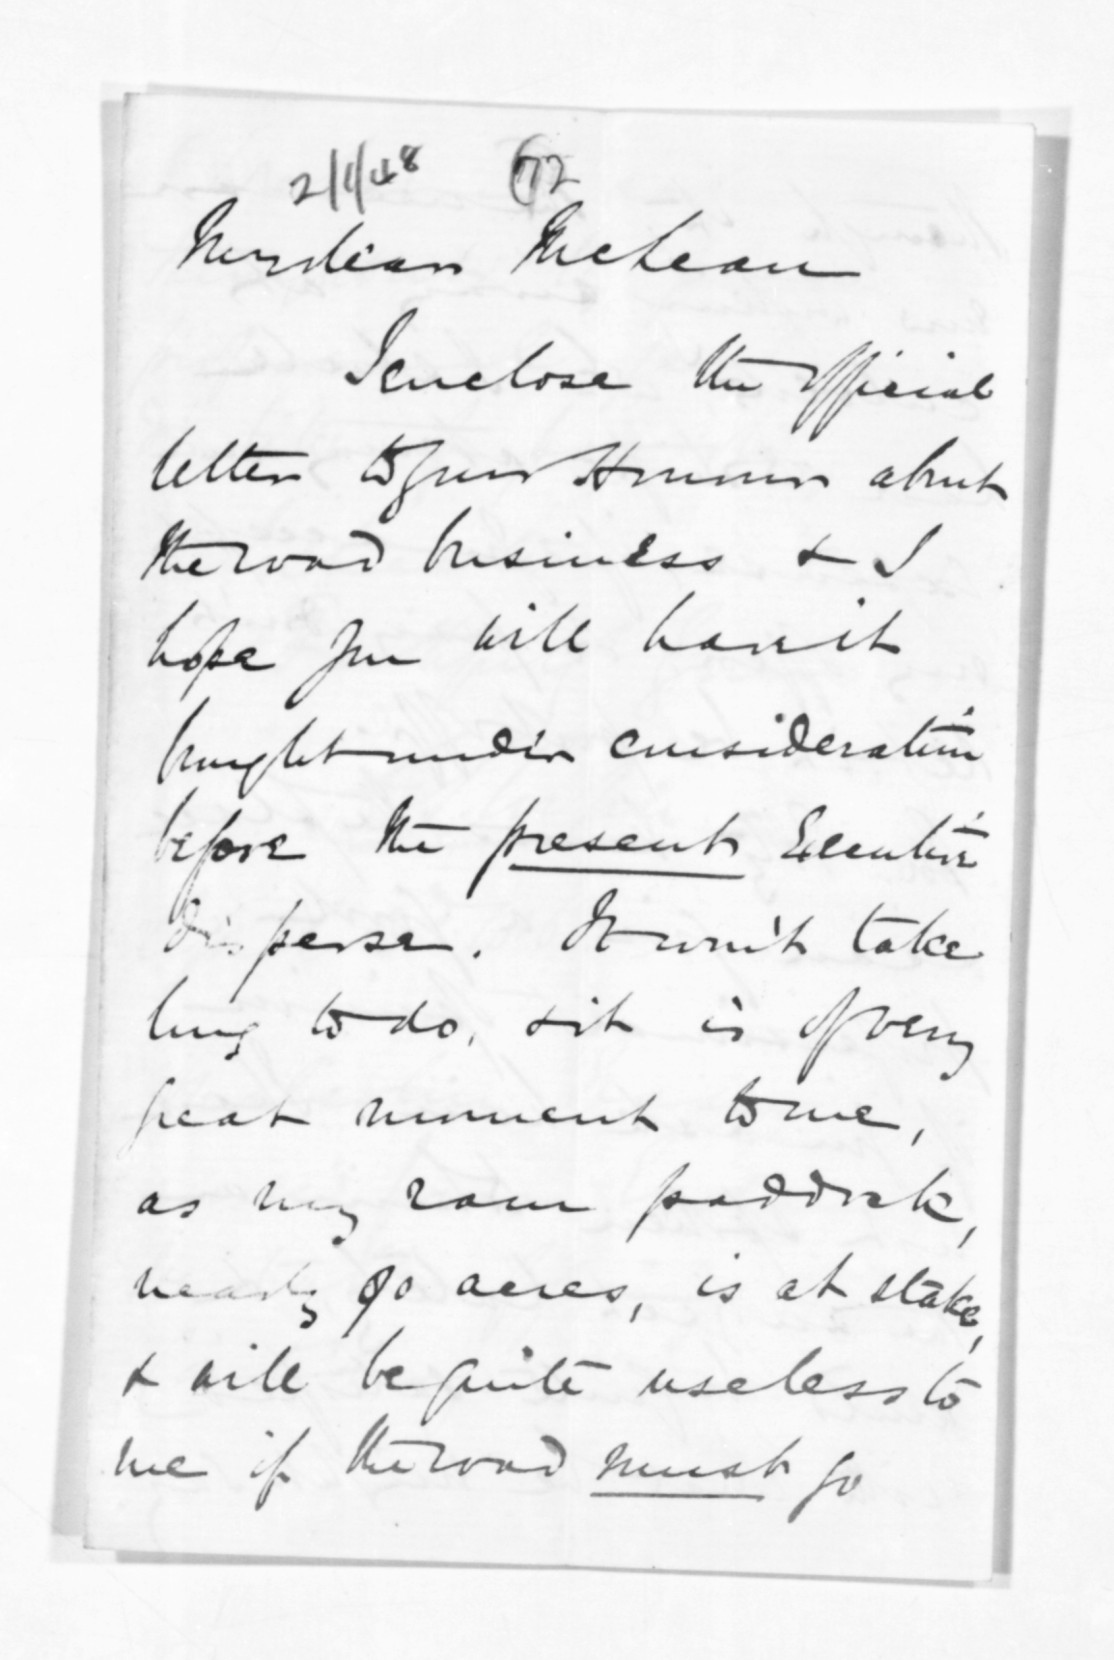 2/1/48 72
My dear McLean
I enclose the official
letter to your Honour about
the road business & I
hope you will have it
brought under consideration
before the present Executive
disperse. It won't take
long to do, & it is of very
great moment to me,
as my ram paddock,
nearly 90 acres, is at stake,
& will be quite useless to
me if the road must go